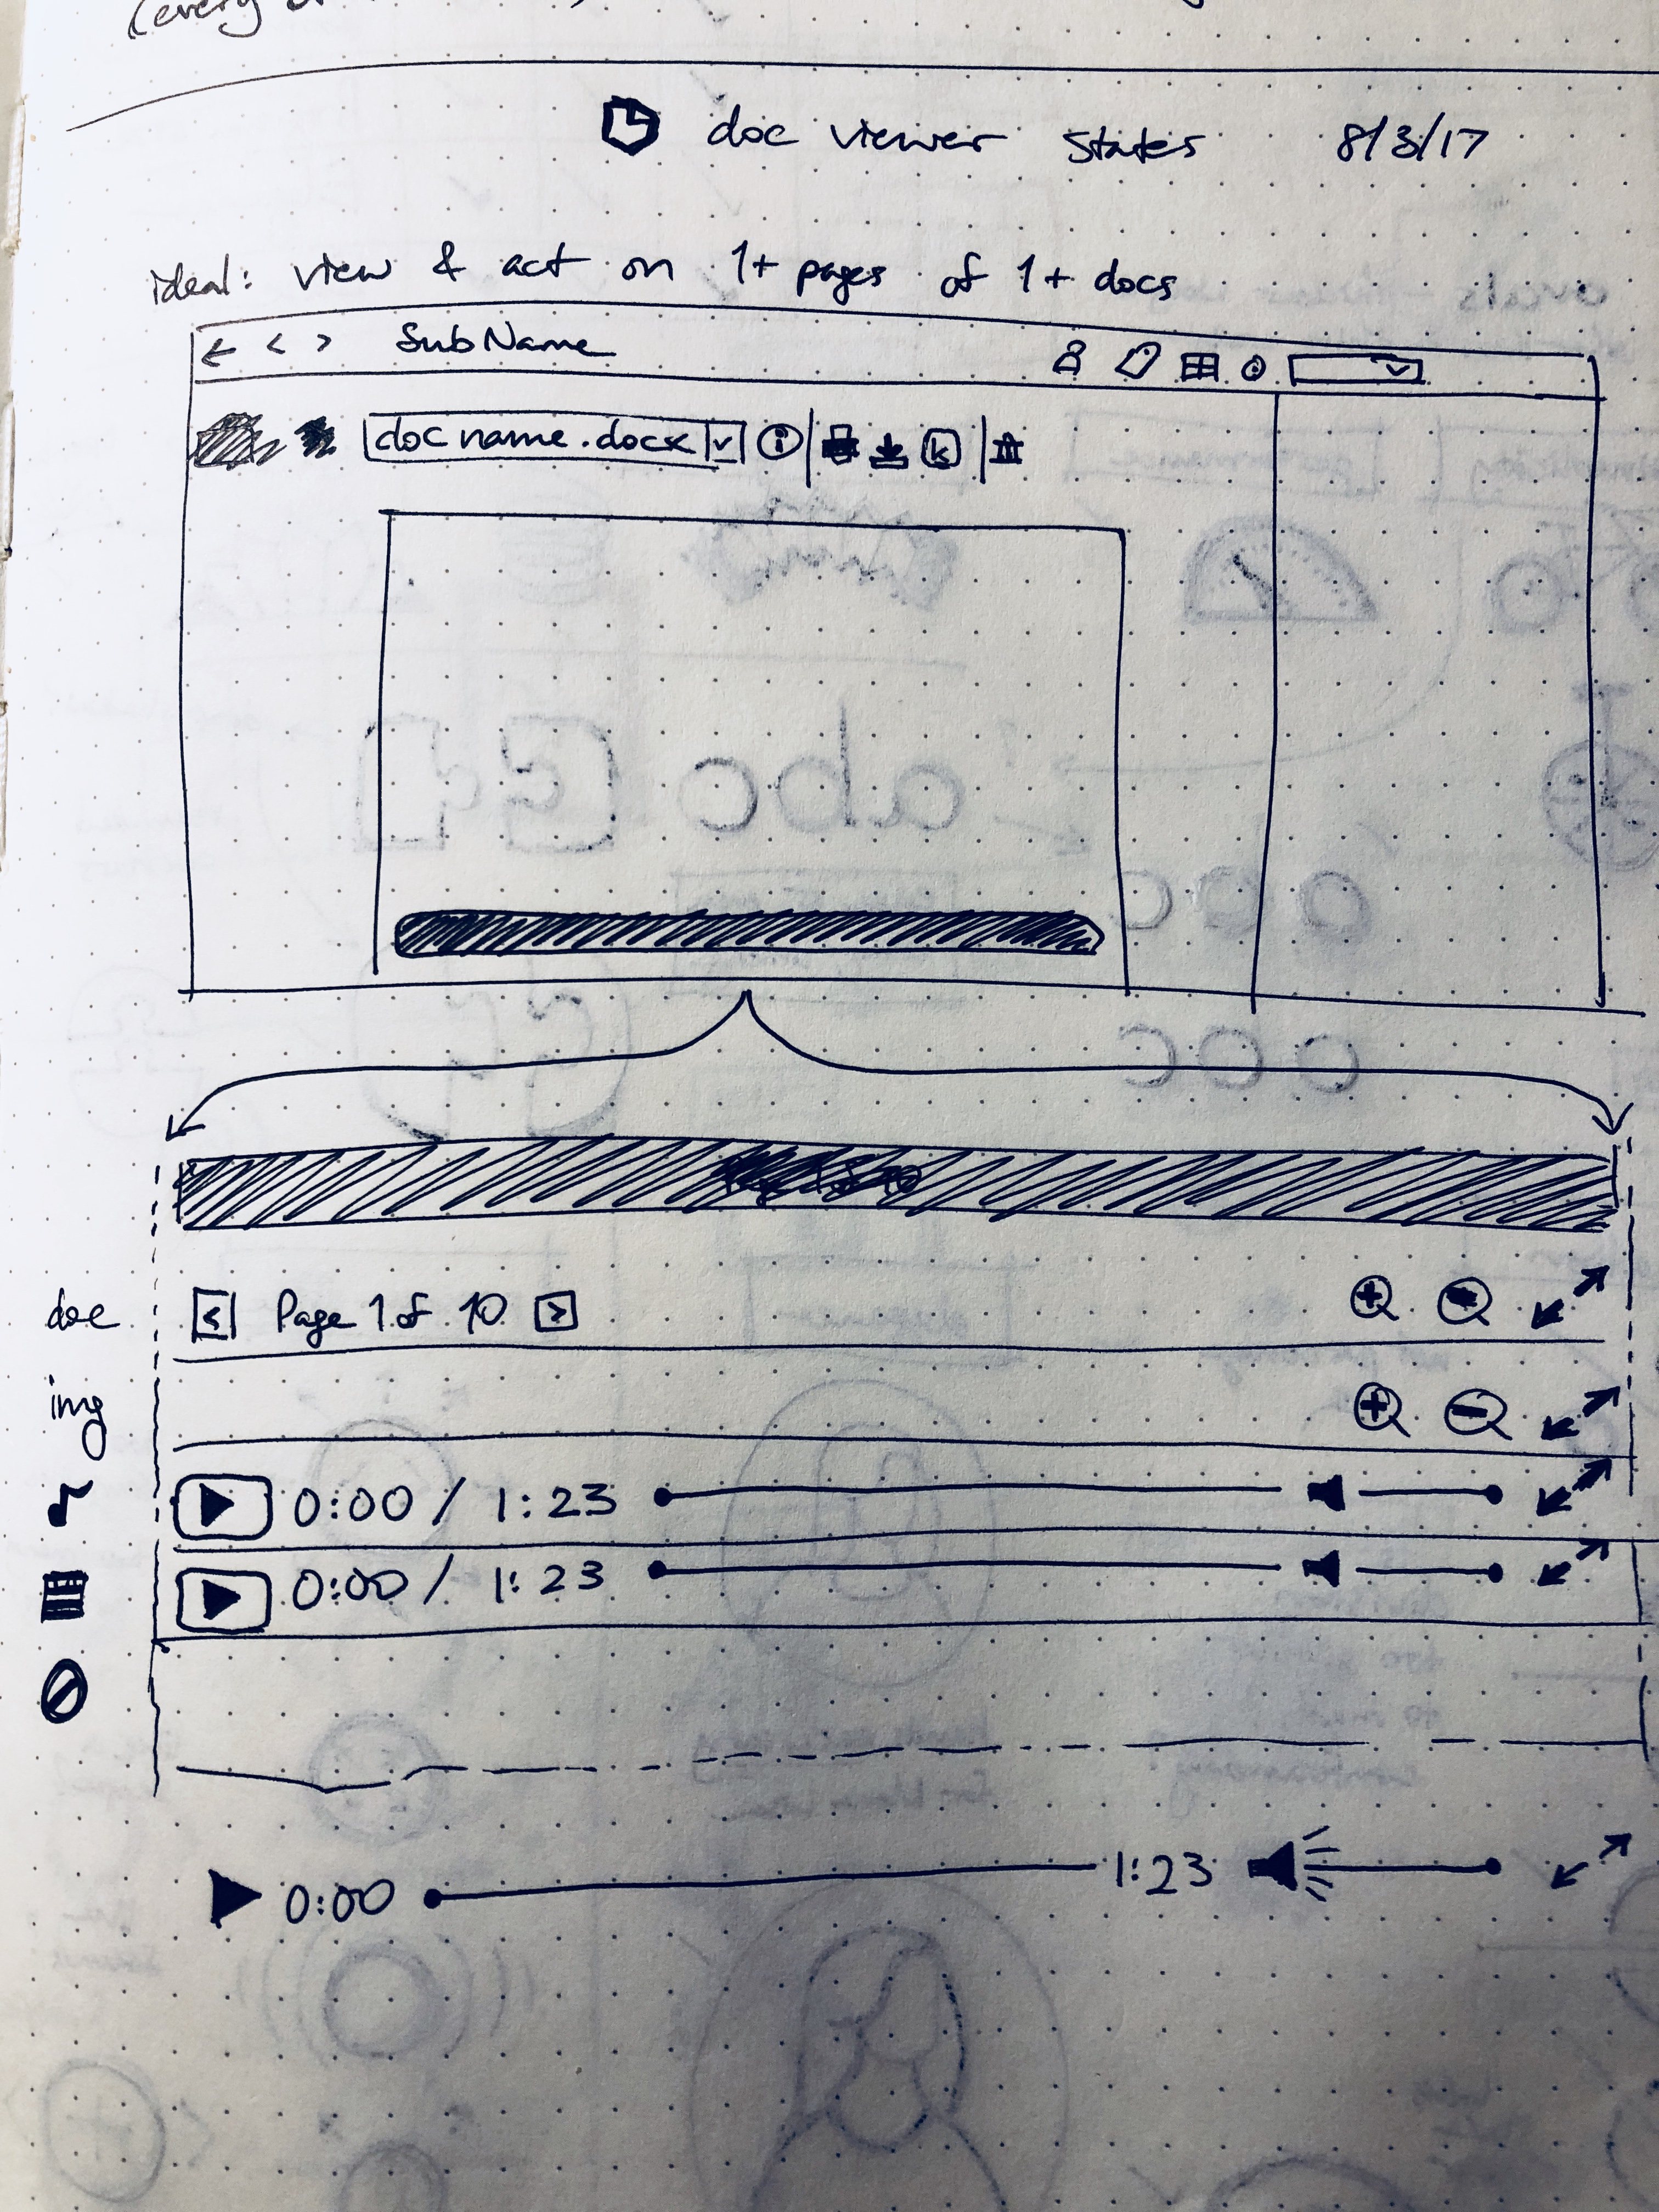 (every
doc viewer states 8/3/17
ideal: view & act on 1+ pages of 1+ docs
← < > SubName
docname.docx i k
doc < Page 1 of 10 >
img
0:00 / 1:23
0:00 / 1:23
0:00 1:23